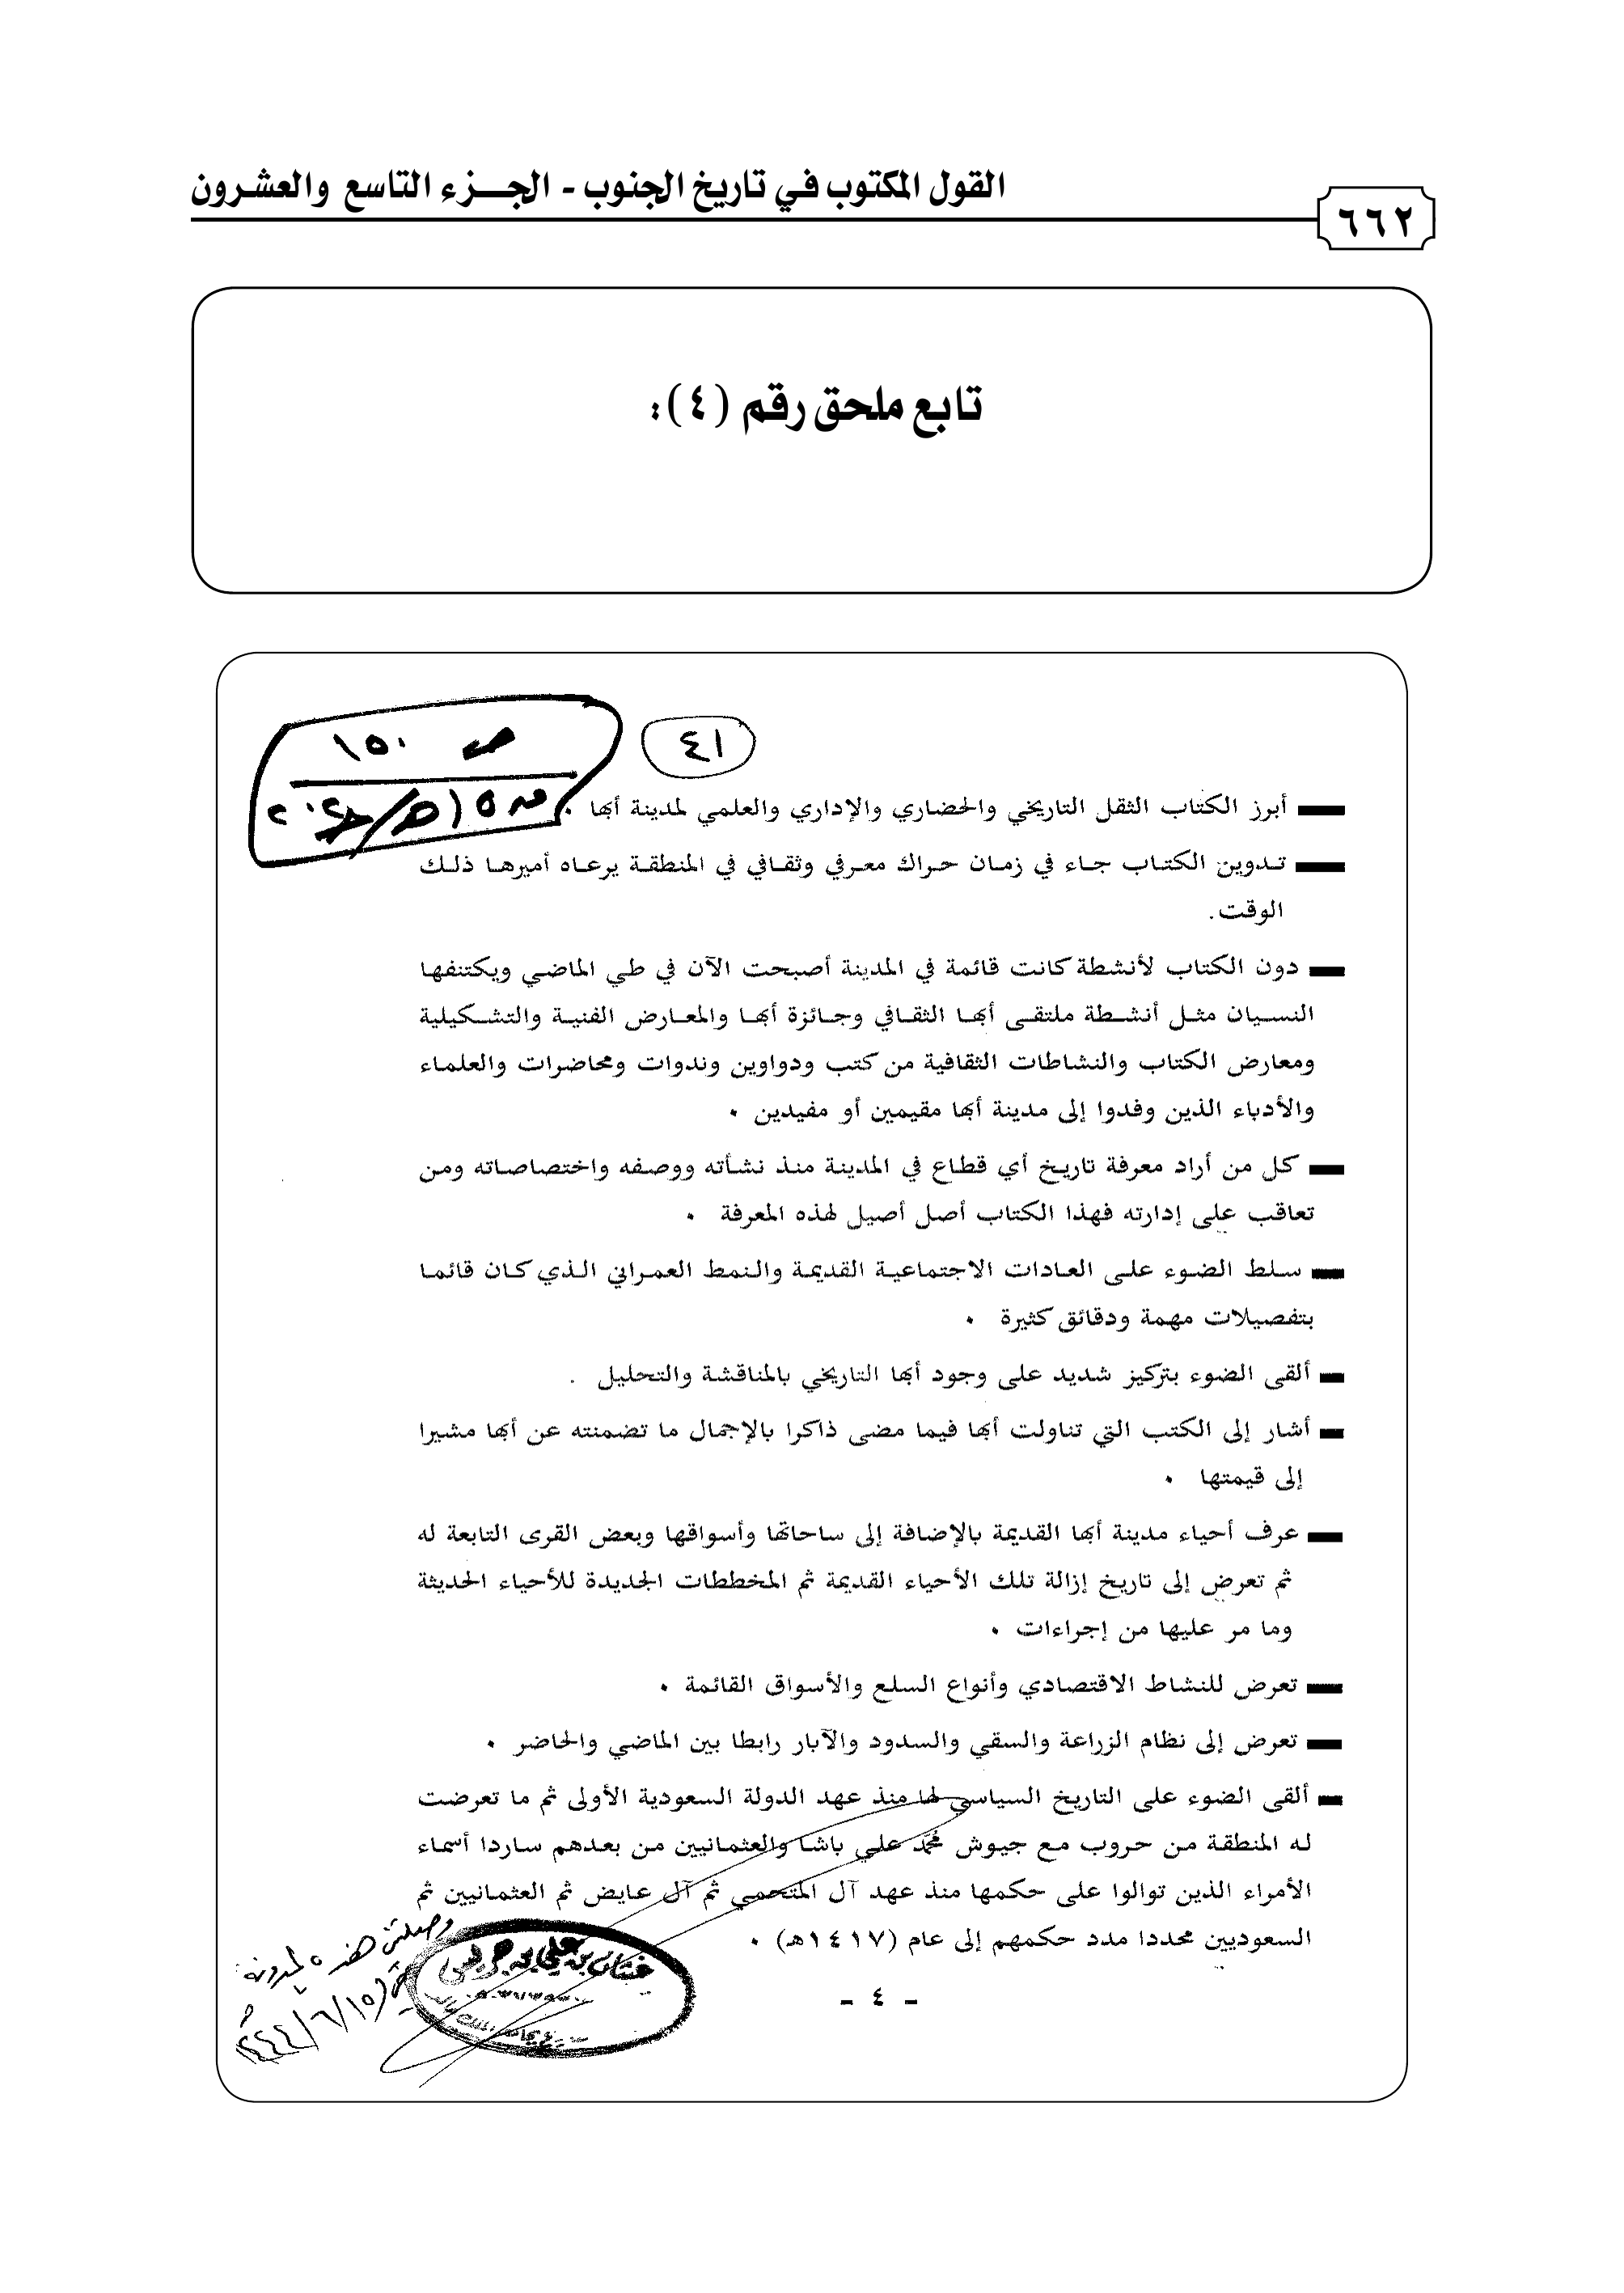 القول المكتوب في تاريخ الجنوب - الجزء التاسع والعشرون
٦٦٢
تابع ملحق رقم (٤):
٤١
ص ١٥٠
أبرز الكتاب الثقل التاريخي والحضاري والإداري والعلمي لمدينة أبها .
تدوين الكتاب جاء في زمان حراك معرفي وثقافي في المنطقة يرعاه أميرها ذلك
الوقت.
دون الكتاب لأنشطة كانت قائمة في المدينة أصبحت الآن في طي الماضي ويكتنفها
النسيان مثل أنشطة ملتقى أبها الثقافي وجائزة أبها والمعارض الفنية والتشكيلية
ومعارض الكتاب والنشاطات الثقافية من كتب ودواوين وندوات ومحاضرات والعلماء
والأدباء الذين وفدوا إلى مدينة أبها مقيمين أو مفيدين .
كل من أراد معرفة تاريخ أي قطاع في المدينة منذ نشأته ووصفه واختصاصاته ومن
تعاقب على إدارته فهذا الكتاب أصل أصيل لهذه المعرفة .
سلط الضوء على العادات الاجتماعية القديمة والنمط العمراني الذي كان قائما
بتفصيلات مهمة ودقائق كثيرة .
ألقى الضوء بتركيز شديد على وجود أبها التاريخي بالمناقشة والتحليل .
أشار إلى الكتب التي تناولت أبها فيما مضى ذاكرا بالإجمال ما تضمنته عن أبها مشيرا
إلى قيمتها .
عرف أحياء مدينة أبها القديمة بالإضافة إلى ساحاتها وأسواقها وبعض القرى التابعة له
ثم تعرض إلى تاريخ إزالة تلك الأحياء القديمة ثم المخططات الجديدة للأحياء الحديثة
وما مر عليها من إجراءات .
تعرض للنشاط الاقتصادي وأنواع السلع والأسواق القائمة .
تعرض إلى نظام الزراعة والسقي والسدود والآبار رابطا بين الماضي والحاضر .
ألقى الضوء على التاريخ السياسي لها منذ عهد الدولة السعودية الأولى ثم ما تعرضت
له المنطقة من حروب مع جيوش محمد علي باشا والعثمانيين من بعدهم ساردا أسماء
الأمراء الذين توالوا على حكمها منذ عهد آل المتحمي ثم آل عايض ثم العثمانيين ثم
السعوديين محددا مدد حكمهم إلى عام (١٤١٧هـ) .
وصلتني هذه المدونة
غيثان بن علي بن جريس
- ٤ -